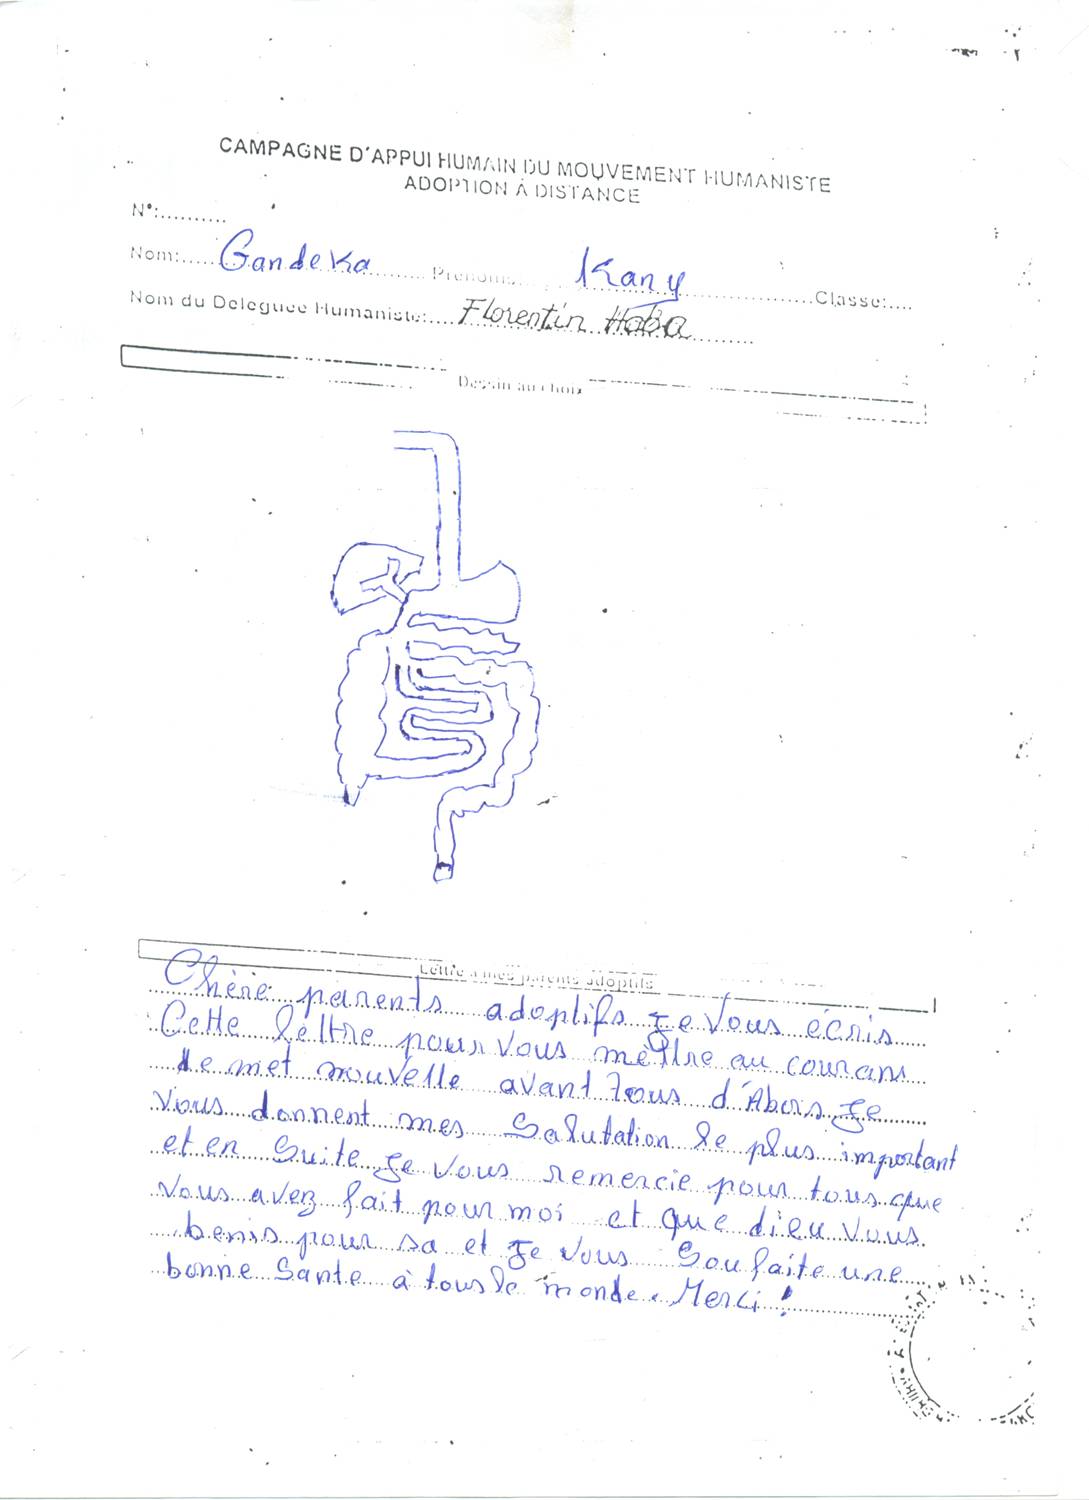 CAMPAGNE D'APPUI HUMAIN DU MOUVEMENT HUMANISTE
ADOPTION À DISTANCE
N°:..........
Nom:.....Gandeka........Prénoms:.....Kany...............Classe:....
Nom du Deleguee Humaniste:....Florentin Haba.........
Dessin au choix
Lettre a mes parents adoptifs
Chère parents adoptifs Je Vous écris
Cette lèttre pour Vous mèttre au courant
de met nouvelle avant Tous d'Abors Je
Vous donnent mes Salutation le plus important
et en Suite Je Vous remercie pour tous que
Vous avez fait pour moi et que dieu Vous
benis pour sa et Je Vous Soufaite une
bonne Sante à tous le monde. Merci!